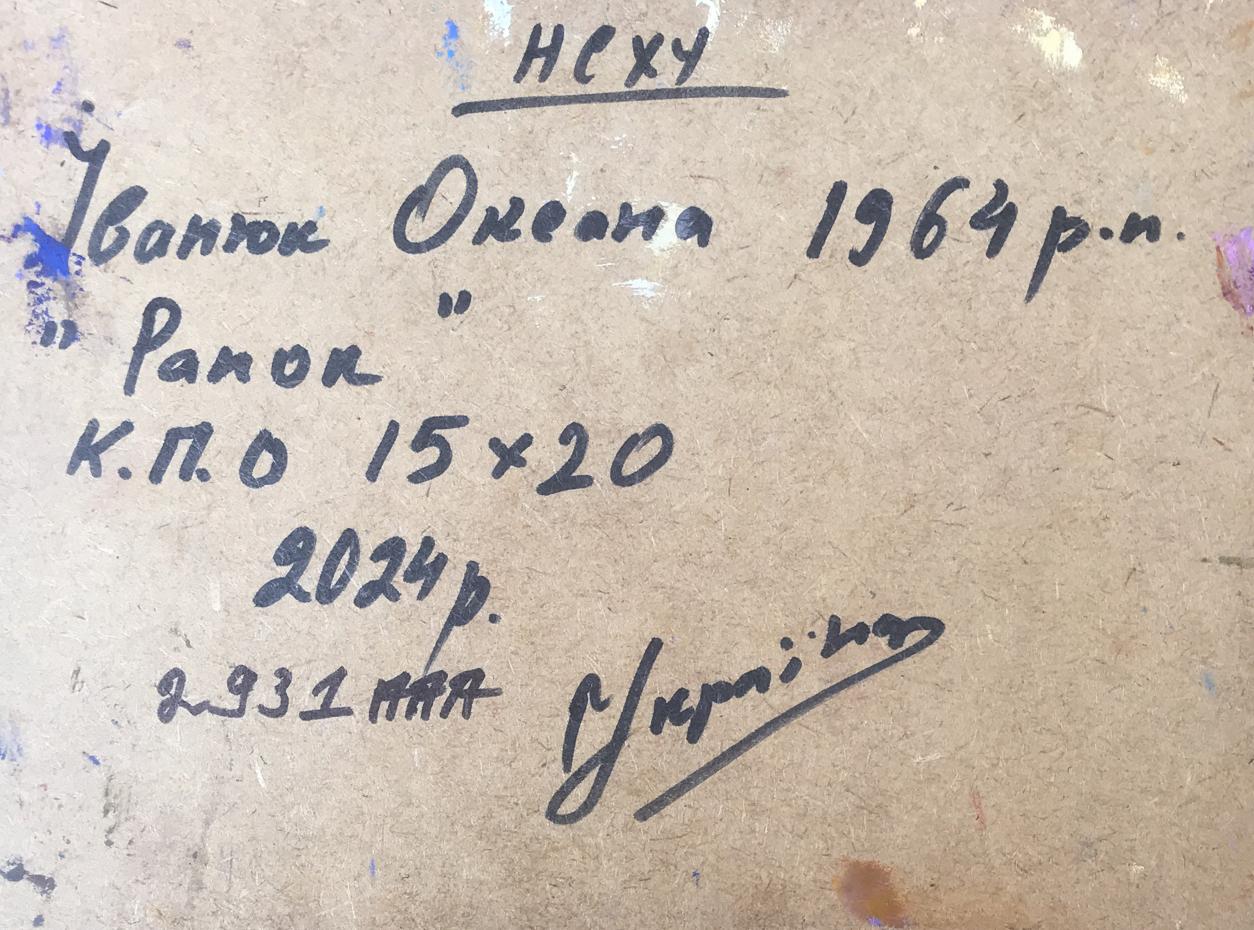 НСХУ
Іванюк Океана 1964 р.н.
"Ранок"
К.П.О 15×20
2024 р.
2931 ААА
Україна